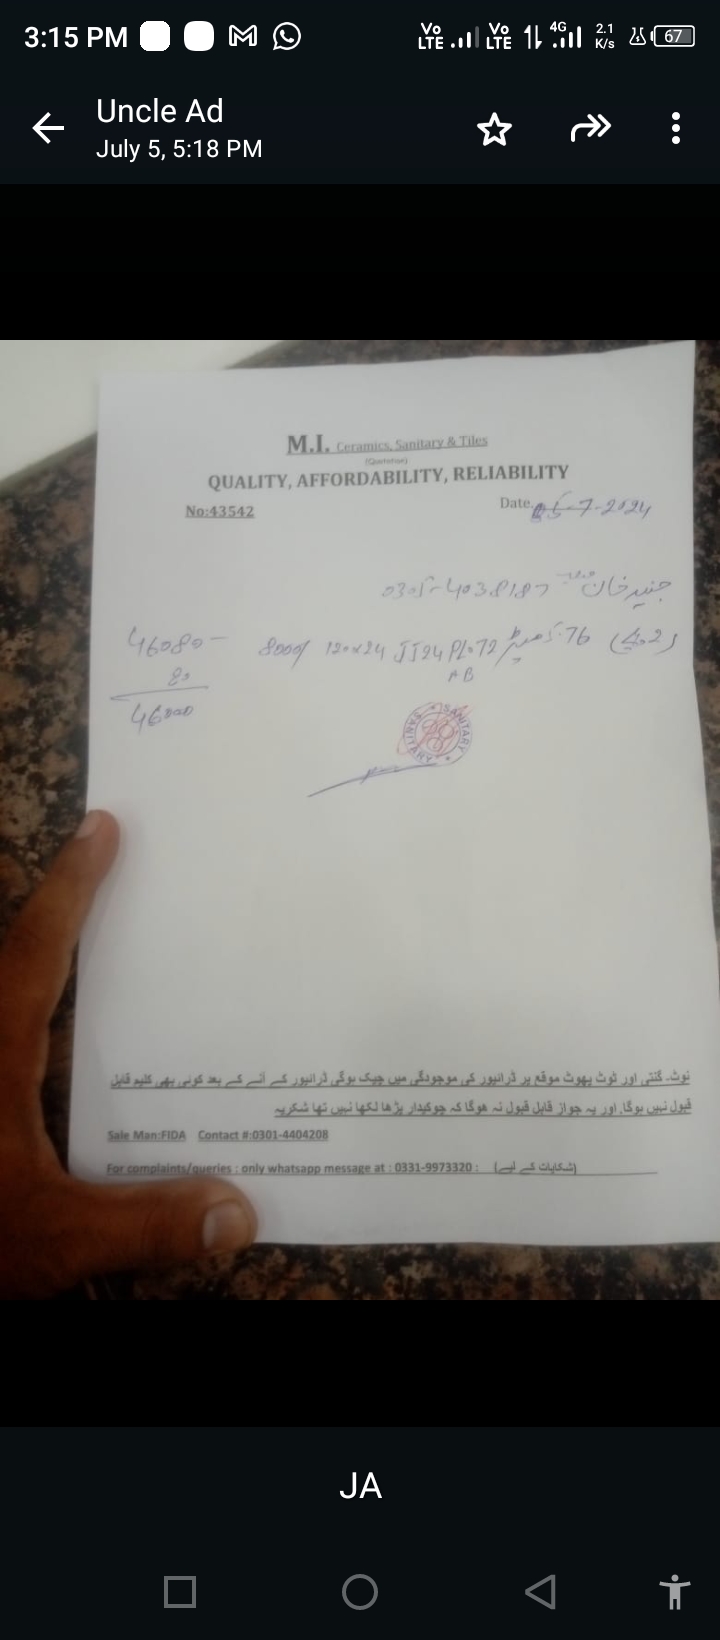 3:15 PM Vo LTE Vo LTE 4G 2.1 K/s 67
Uncle Ad
July 5, 5:18 PM
M.I. Ceramics, Sanitary & Tiles
QUALITY, AFFORDABILITY, RELIABILITY
No:43542 Date. 05-7-2024
جنید خان صاحب 0305-4038187
76. 72 JJ24 120x24 46080-
AB 80
46000
SANITARY SANITARY
نوٹ۔ گنتی اور ٹوٹ پھوٹ موقع پر ڈرائیور کی موجودگی میں چیک ہوگی ڈرائیور کے آنے کے بعد کوئی بھی کلیم قابل
قبول نہیں ہوگا۔ اور یہ جواز قابل قبول نہ ھوگا کہ چوکیدار پڑھا لکھا نہیں تھا شکریہ
Sale Man:FIDA Contact #:0301-4404208
For complaints/queries : only whatsapp message at : 0331-9973320 : (شکایات کے لیے)
JA